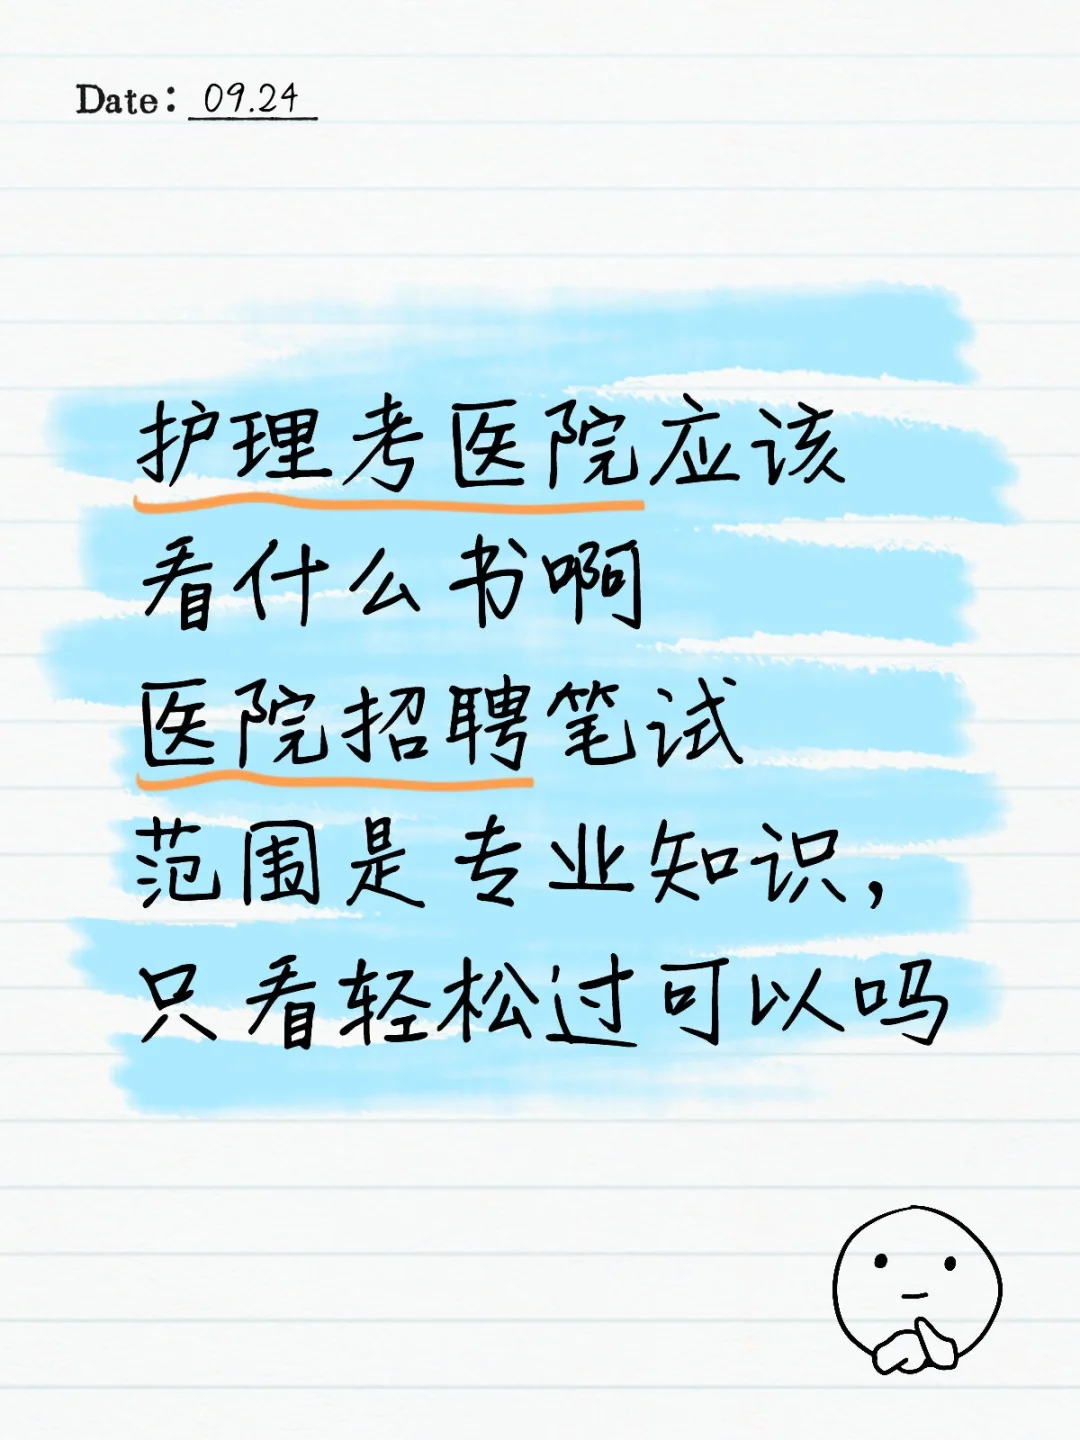 Date: 09.24
护理考医院应该
看什么书啊
医院招聘笔试
范围是专业知识，
只看轻松过可以吗